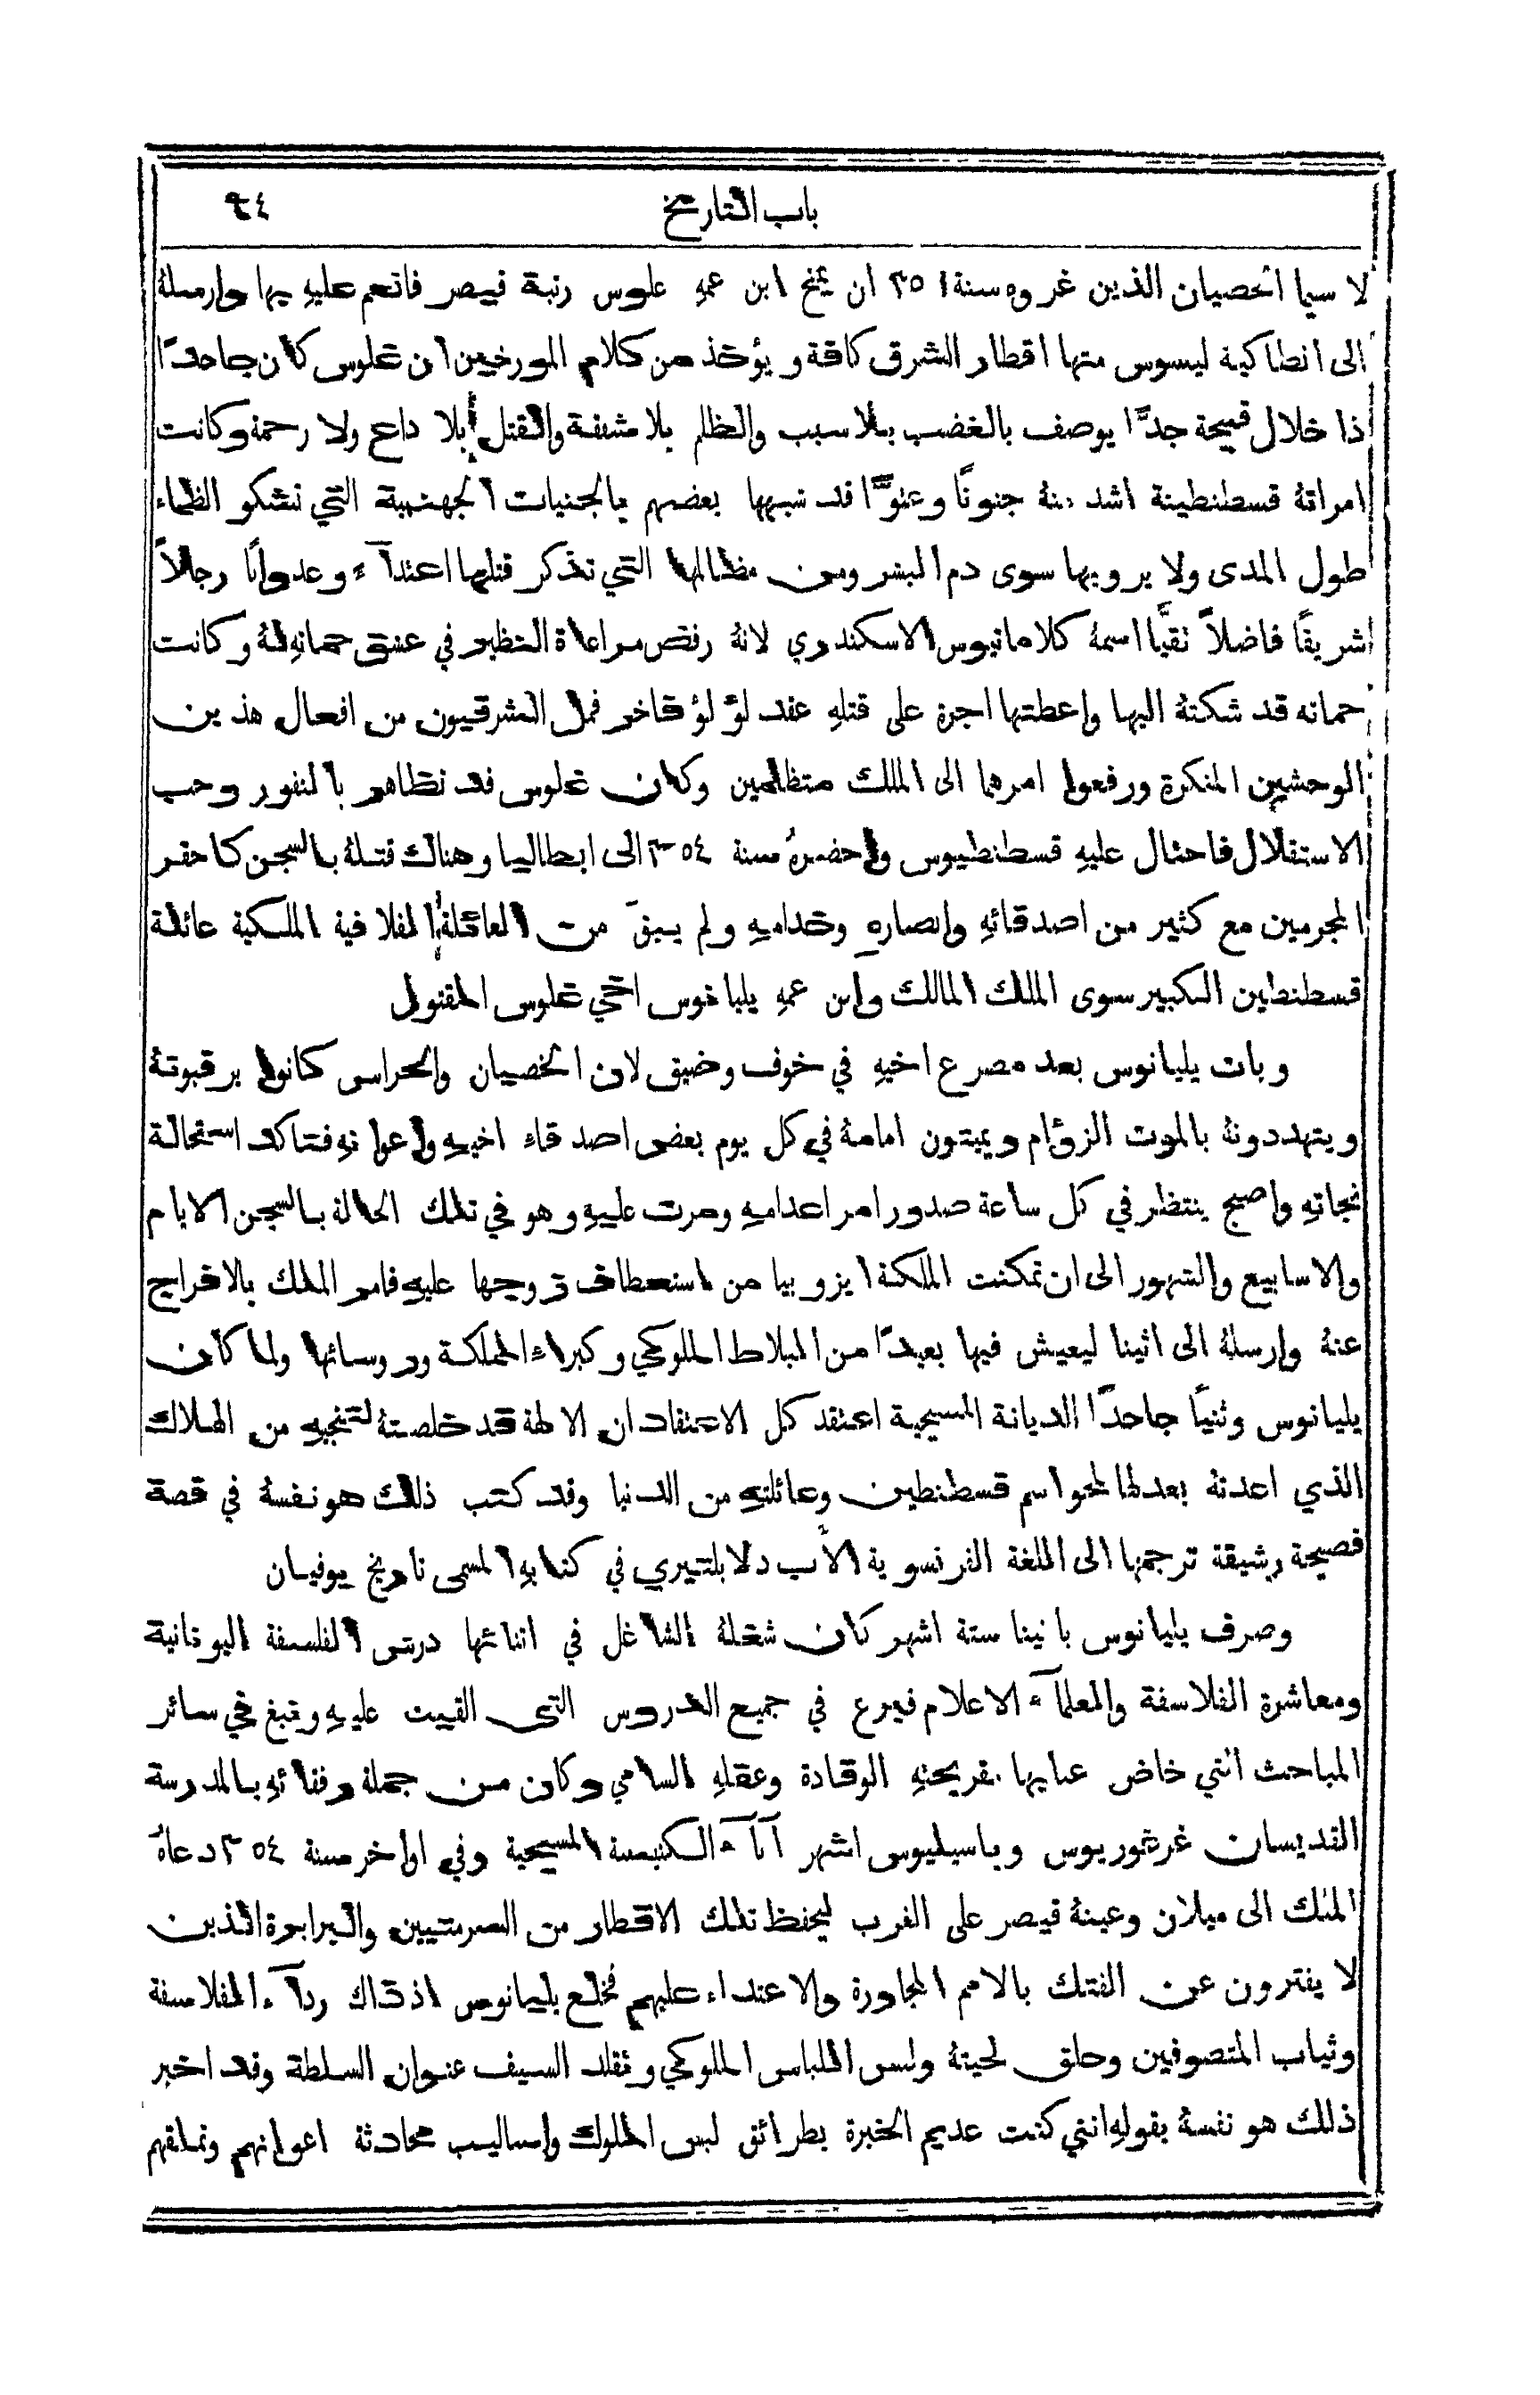 باب التاريخ ٩٤
لا سيما الخصيان الذين غروه سنة ٣٥١ ان يمنح ابن عمهِ غلوس رتبة قيصر فانعم عليهِ بها وارسلهُ
الى انطاكية ليسوس منها اقطار الشرق كافة ويؤخذ من كلام المورخين ان غلوس كان جاحدًا
ذا خلال قبيحة جدًّا يوصف بالغضب بلا سبب والظلم بلا شفقة والقتل بلا داعٍ ولا رحمة وكانت
امراتهُ قسطنطينة اشد منهُ جنونًا وعتوًّا قد شبهها بعضهم بالجنيات الجهنمية التي تشكو الظماء
طول المدى ولا يرويها سوى دم البشر ومن مظالمها التي تذكر قتلها اعتدآءً وعدوانًا رجالاً
شريفًا فاضلاً تقيًّا اسمهُ كلاماتيوس الاسكندري لانهُ رفض مراعاة النظير في عشق حماتهِ لهُ وكانت
حماته قد شكتهُ اليها واعطتها اجرة على قتلهِ عقد لؤلؤ فاخر فمل المشرقيون من افعال هذين
الوحشين المنكرة ورفعوا امرهما الى الملك متظلمين وكان غلوس قد تظاهر بالنفور وحب
الاستقلال فاحتال عليهِ قسطنطيوس واحضرهُ سنة ٣٥٤ الى ايطاليا وهناك قتلهُ بالسجن كاحقر
المجرمين مع كثير من اصدقائهِ وانصارهِ وخدامهِ ولم يبقَ من العائلة الفلافية الملكية عائلة
قسطنطين الكبير سوى الملك المالك وابن عمهِ يليانوس اخي غلوس المقتول
وبات يليانوس بعد مصرع اخيهِ في خوف وضيق لان الخصيان والحراس كانوا يرقبونهُ
ويتهددونهُ بالموت الزؤام ويميتون امامهُ في كل يوم بعض اصدقاء اخيهِ واعوانهِ فتاكد استحالة
نجاتهِ واصبح ينتظر في كل ساعة صدور امر اعدامهِ ومرت عليهِ وهو في تلك الحالة بالسجن الايام
والاسابيع والشهور الى ان تمكنت الملكة ايزوبيا من استعطاف زوجها عليهِ فامر الملك بالافراج
عنهُ وارسلهُ الى اثينا ليعيش فيها بعيدًا من البلاط الملوكي وكبراء المملكة وروسائها ولما كان
يليانوس وثنيًّا جاحدًا الديانة المسيحية اعتقد كل الاعتقاد ان الالهة قد خلصتهُ لتنجيهِ من الهلاك
الذي اعدتهُ بعدلها لمحو اسم قسطنطين وعائلتهِ من الدنيا وقد كتب ذلك هو نفسهُ في قصة
فصيحة رشيقة ترجمها الى اللغة الفرنسوية الأب دلا بلتيري في كتابهِ المسمى تاريخ يوفيان
وصرف يليانوس باثينا ستة اشهر كان شغلهُ الشاغل في اثنائها درس الفلسفة اليونانية
ومعاشرة الفلاسفة والعلمآء الاعلام فبرع في جميع الدروس التى القيت عليهِ ونبغ في سائر
المباحث التي خاض عبابها بقريحتهِ الوقادة وعقلهِ السامي وكان من جملة رفقائهِ بالمدرسة
القديسان غريغوريوس وباسيليوس اشهر آبآء الكنيسة المسيحية وفي اواخر سنة ٣٥٤ دعاهُ
الملك الى ميلان وعينهُ قيصر على الغرب ليحفظ تلك الاقطار من الصرمتيين والبرابرة الذين
لا يفترون عن الفتك بالامم المجاورة والاعتداء عليهم فخلع يليانوس اذ ذاك ردآء الفلاسفة
وثياب المتصوفين وحلق لحيتهُ ولبس اللباس الملوكي وتقلد السيف عنوان السلطة وقد اخبر
ذلك هو نفسهُ بقولهِ انني كنت عديم الخبرة بطرائق لبس الملوك واساليب محادثة اعوانهم وتملقهم